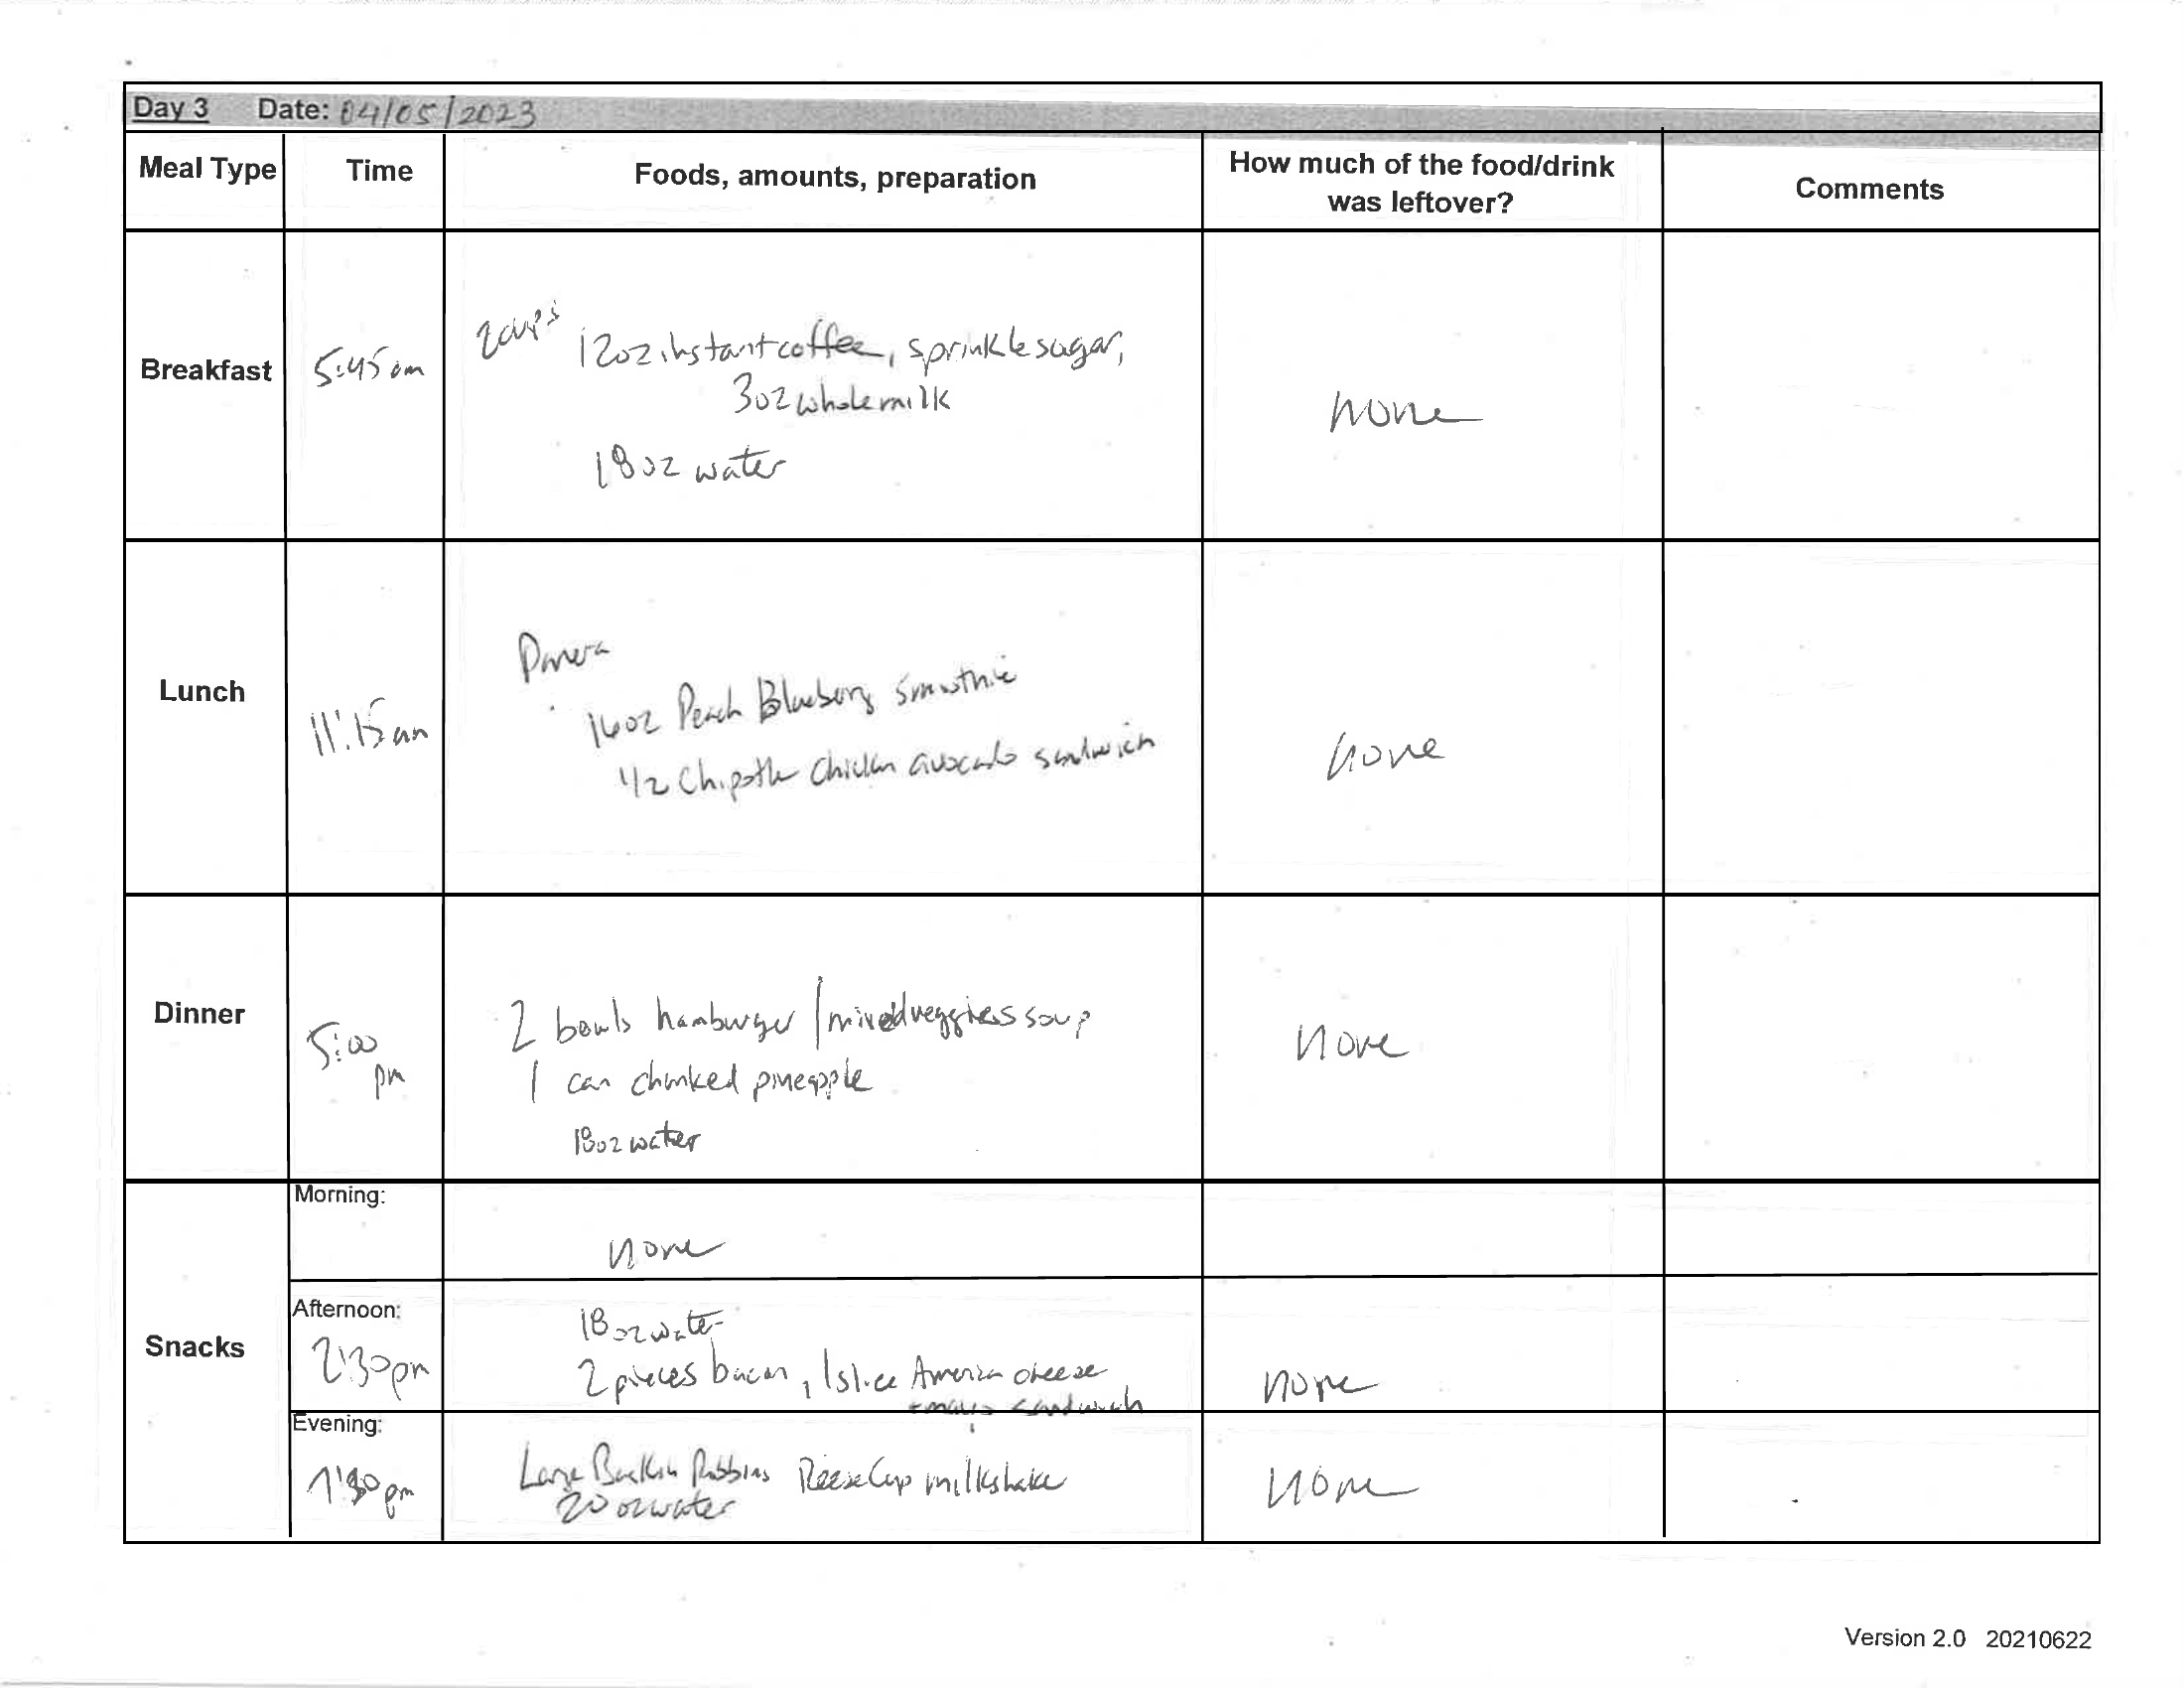 Day 3 Date: 04/05/2023
Meal Type Time Foods, amounts, preparation How much of the food/drink was leftover? Comments
Breakfast 5:45am
2cups 12oz instant coffee, sprinkle sugar,
3oz whole milk
18oz water
none
Lunch 11:15am
Panera
16oz Peach Blueberry smoothie
1/2 Chipotle chicken avocado sandwich
none
Dinner 5:00 pm
2 bowls hamburger/mixed veggies soup
1 can chunked pineapple
18oz water
none
Snacks
Morning:
none
Afternoon:
2:30pm
18oz water
2 pieces bacon, 1 slice American cheese
+ mayo sandwich
none
Evening:
pm
Large Baskin Robbins Reese Cup milkshake
20 oz water
none
Version 2.0 20210622